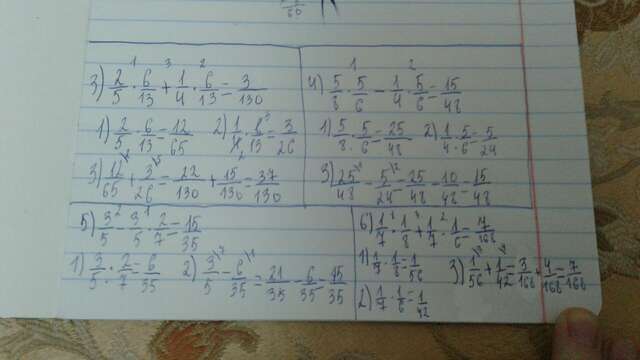 60
1 3 2
3) 2/5 · 6/13 + 1/4 · 6/13 = 3/130
1) 2/5 · 6/13 = 12/65 2) 1/4 · 6/13 = 3/26
3) 12/65 + 3/26 = 22/130 + 15/130 = 37/130
1 2
4) 5/8 · 5/6 - 1/4 · 5/6 = 15/48
1) 5/8 · 5/6 = 25/48 2) 1/4 · 5/6 = 5/24
3) 25/48 - 5/24 = 25/48 - 10/48 = 15/48
2 1
5) 3/5 - 3/5 · 2/7 = 15/35
1) 3/5 · 2/7 = 6/35 2) 3/5 - 6/35 = 21/35 - 6/35 = 15/35
6) 1/7 · 1/8 + 1/7 · 1/6 = 7/168
1) 1/7 · 1/8 = 1/56 3) 1/56 + 1/42 = 3/168 + 4/168 = 7/168
2) 1/7 · 1/6 = 1/42